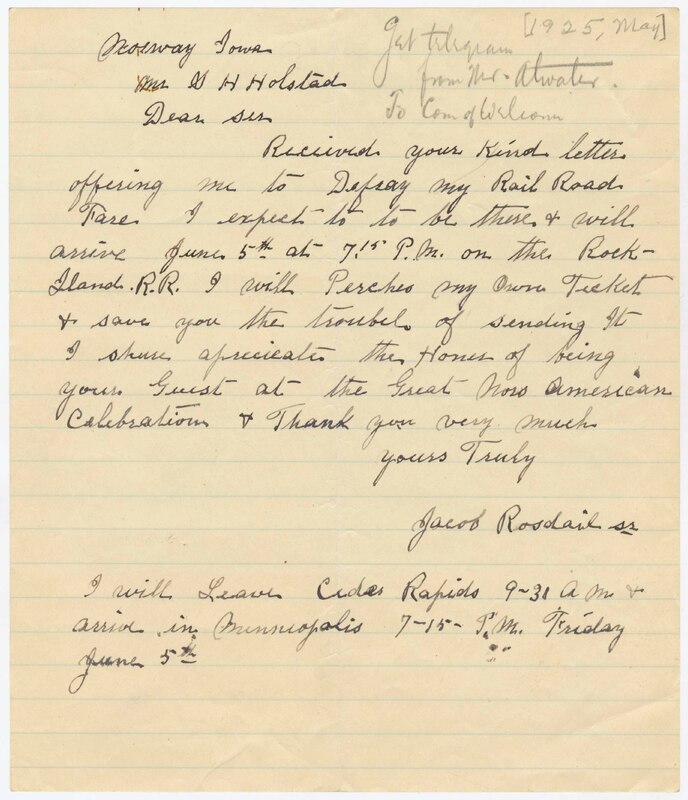 [1925, May]
Get telegram
from Mr. Atwater.
To Com of Welcom
Norway Iowa
Mr S H Holstad
Dear sir
Recieved your Kind letter
offering me to Defray my Rail Road
Fare I expect to to be there & will
arrive June 5th at 7:15 P.M. on the Rock-
Iland.R.R. I will Perches my Own Ticket
& save you the troubel of sending It
I shure apricieate the Honer of being
your Guest at the Great Nors American
Celebration & Thank you very much
yours Truly
Jacob Rosdail sr
I will Leave Ceder Rapids 9-31 A M. &
arrive in Minneopolis 7-15- P.M. Friday
June 5th